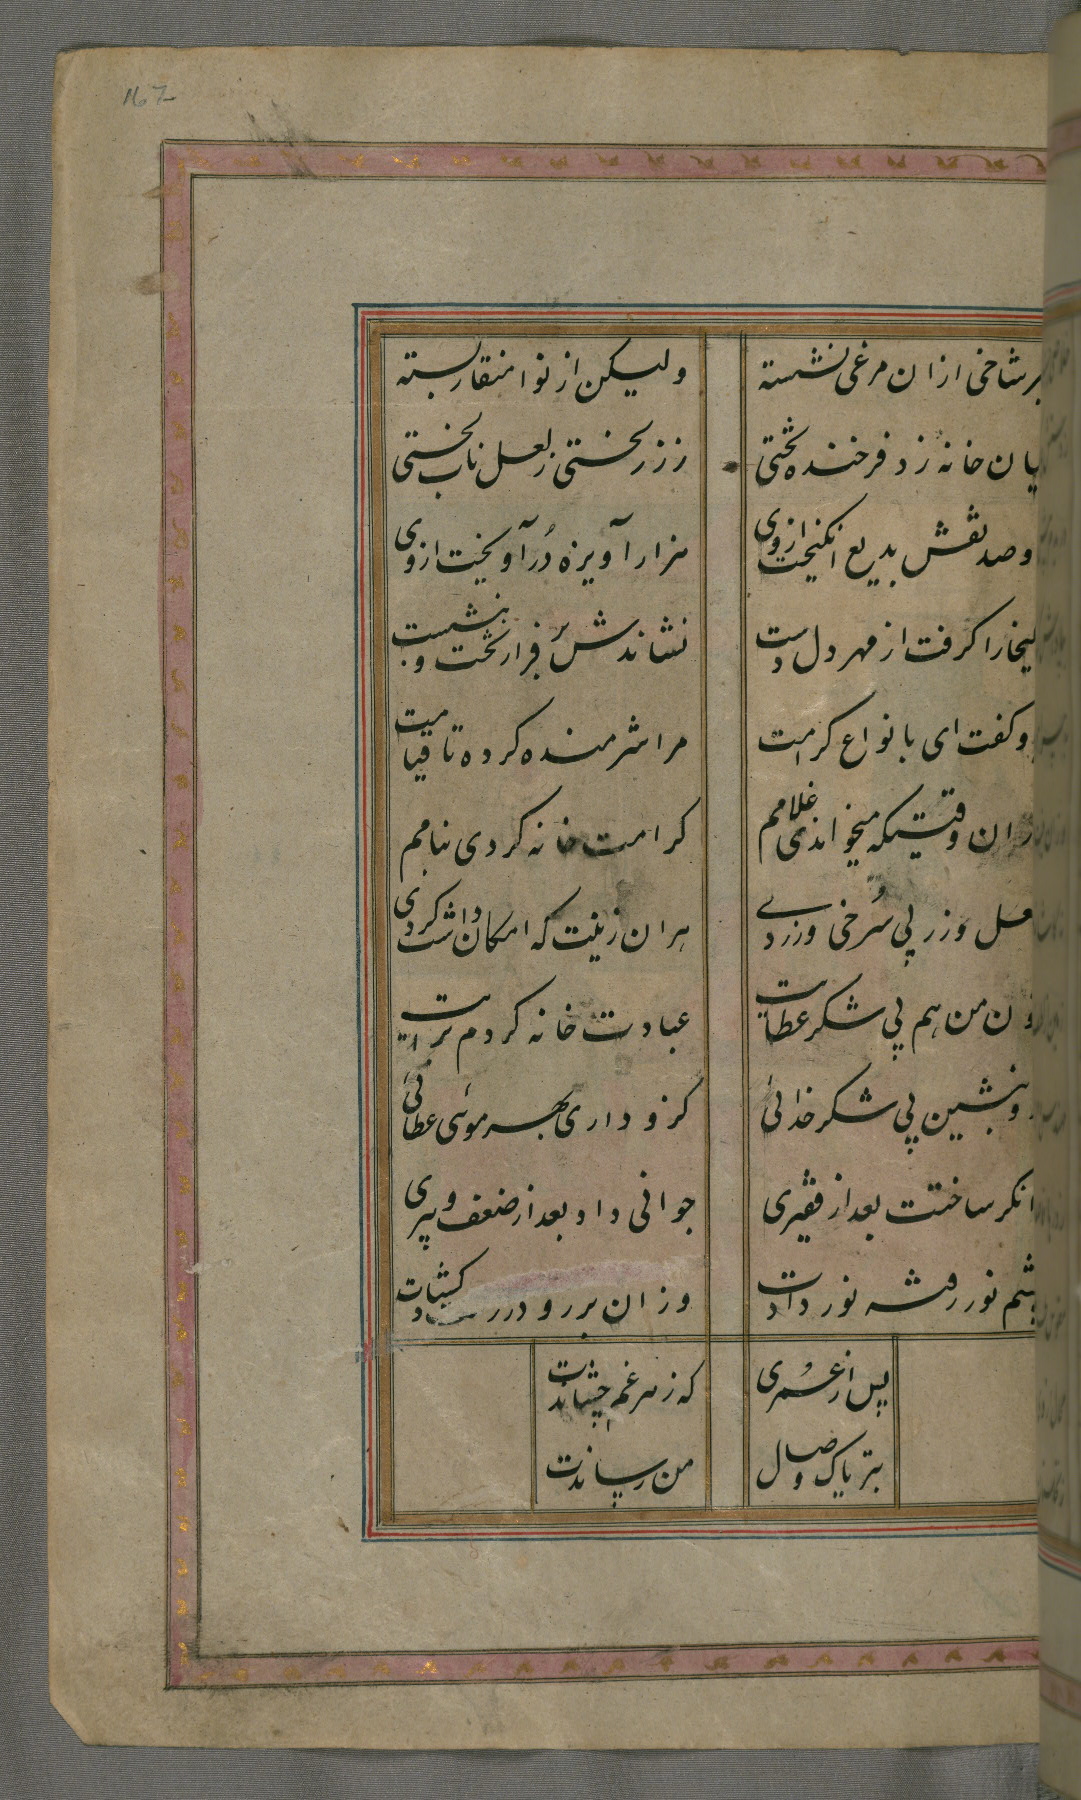 167
برشاخی ازان مرغی نشسته
ولیکن از نوا منقار بسته
میان خانه زد فرخنده تختی
ز زر لختی ز لعل ناب لختی
وصد نقش بدیع انگیخت ازوی
هزار آویزه دُر آویخت ازوی
لیخا را گرفت از مهر دل دست
نشاندش بر فراز تخت و بنشست
وگفت ای بانواع کرامت
مرا شرمنده کرده تا قیامت
دران وقتیکه میخواندی غلامم
کرامت خانه کردی بنامم
لعل وزر پی سُرخی وزردے
هران زینت که امکان داشت کردی
کنون من هم پی شکر عطایت
عبادت خانه کردم برایت
و بنشین پی شکر خدائی
کزو داری بهر موئی عطائی
وانگر ساختت بعد از فقیری
جوانی داد بعد از ضعف و پیری
چشم نور رفته نور دادت
وزان بر رو در رحمت گشادت
پس از عمری
که زهر غم چشاندت
بتریاک وصال
من رساندت